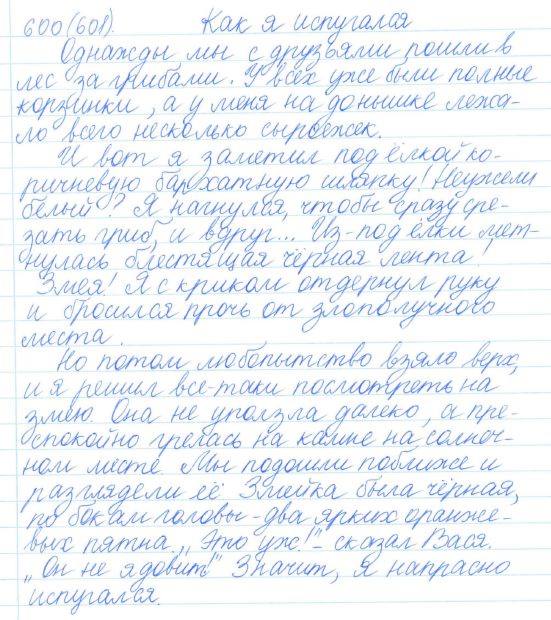 600(601). Как я испугался
Однажды мы с друзьями пошли в
лес за грибами. У всех уже были полные
корзинки, а у меня на донышке лежа-
ло всего несколько сыроежек.
И вот я заметил под ёлкой ко-
ричневую бархатную шляпку! Неужели
белый? Я нагнулся, чтобы сразу сре-
зать гриб, и вдруг... Из-под ёлки мет-
нулась блестящая чёрная лента!
Змея! Я с криком отдернул руку
и бросился прочь от злополучного
места.
Но потом любопытство взяло верх,
и я решил все-таки посмотреть на
змею. Она не уползла далеко, а пре-
спокойно грелась на камне на солнеч-
ном месте. Мы подошли поближе и
разглядели её. Змейка была чёрная,
по бокам головы - два ярких оранже-
вых пятна. „Это уж!" - сказал Вася.
„Он не ядовит!" Значит, я напрасно
испугался.